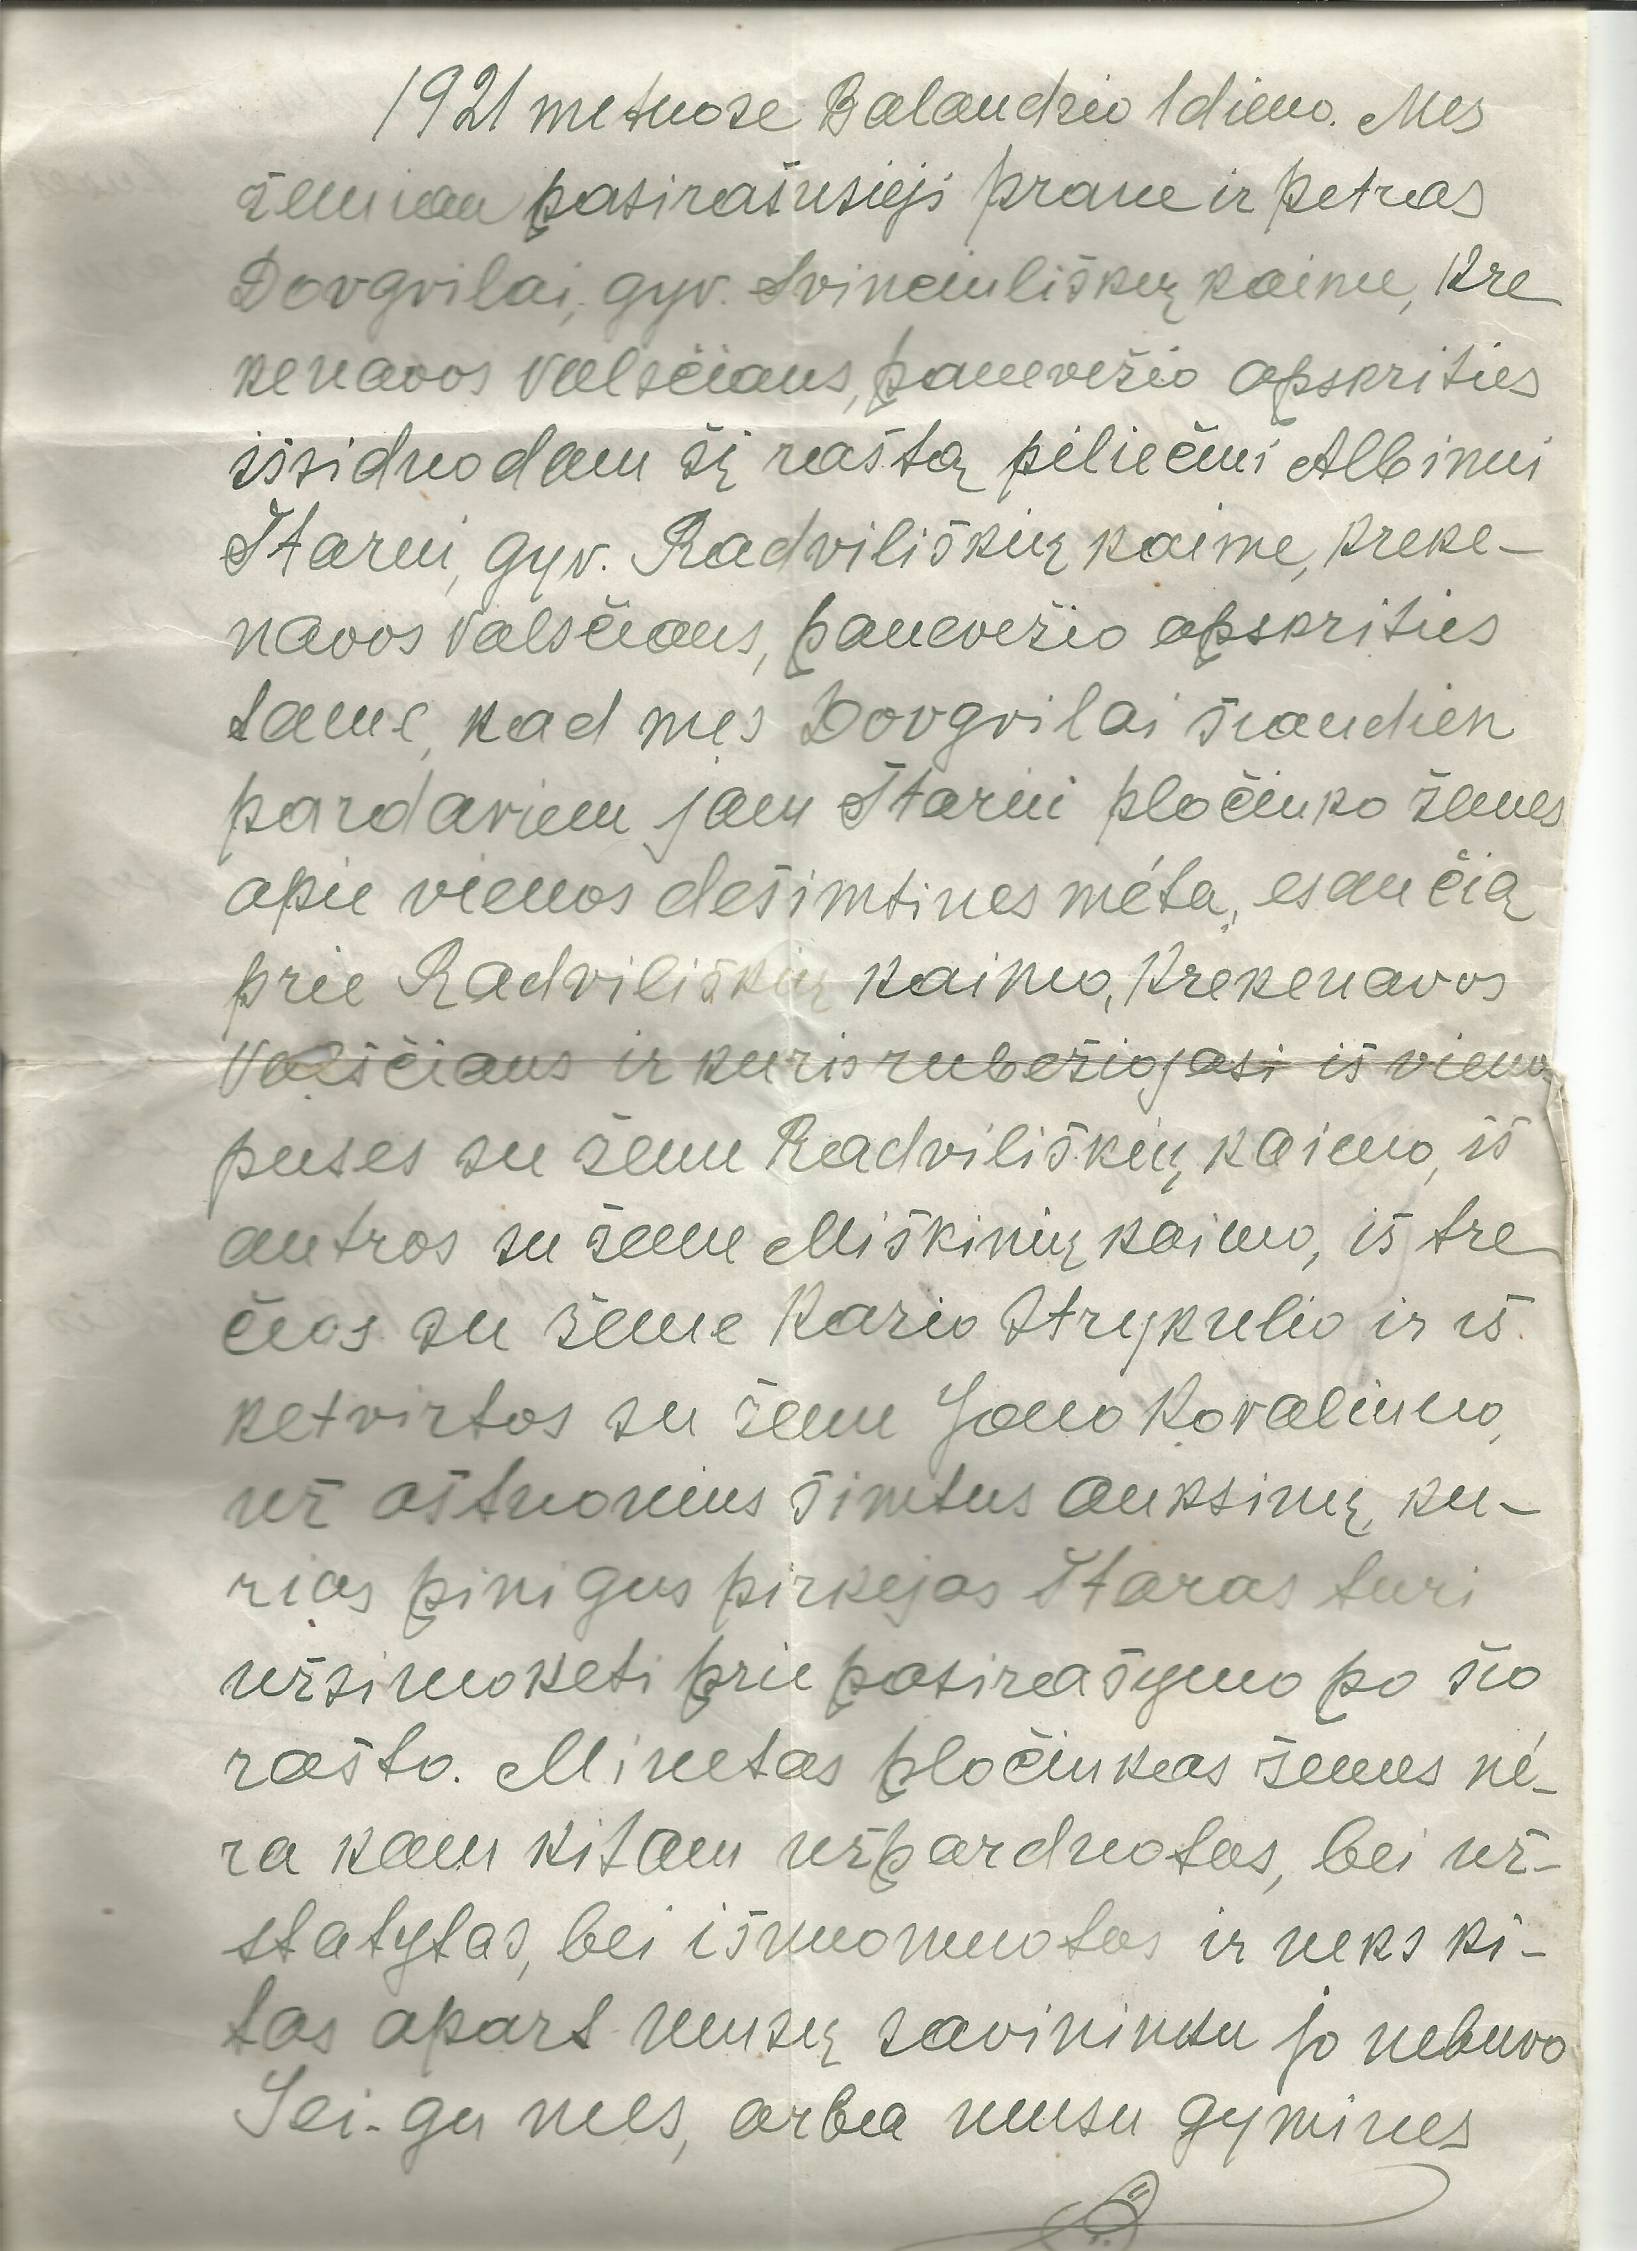 1921 metuose Balandžio 1 dieno. Mes
žemiau pasirašusieji Prane ir Petras
Dovgvilai, gyv. Svinciuliškių kaime, Kre
kenavos valsčiaus, Panevežio apskrities
išsiduodam šį raštą piliečiui Albinui
Štarui, gyv. Radviliškių kaime, Kreke-
navos valsčiaus, Panevežio apskrities
tame, kad mes Dovgvilai šiandien
pardaviem jam Štarui pločiuko žemes
apie vienos dešimtines méta, esančią
prie Radviliškių kaimo, Krekenavos
Valsčiaus ir kuris rubežiojasi iš vienos
puses su žeme Radviliškių kaimo, iš
antros su žeme Miškinių kaimo, iš tre
čios su žeme Kazio Strykulio ir iš
ketvirtos su žeme Jono Kovaliuno,
už aštuonius šimtus auksinų, ku-
rias pinigus pirkejas Štaras turi
užsimoketi prie pasirašymo po šio
rašto. Minetas pločiukas žemes né-
ra kam kitam užparduotas, bei už-
statytas, bei išnuomuotas ir neks ki-
tas apart musų savininku jo nebuvo
Jei-gu mes, arba musu gymines